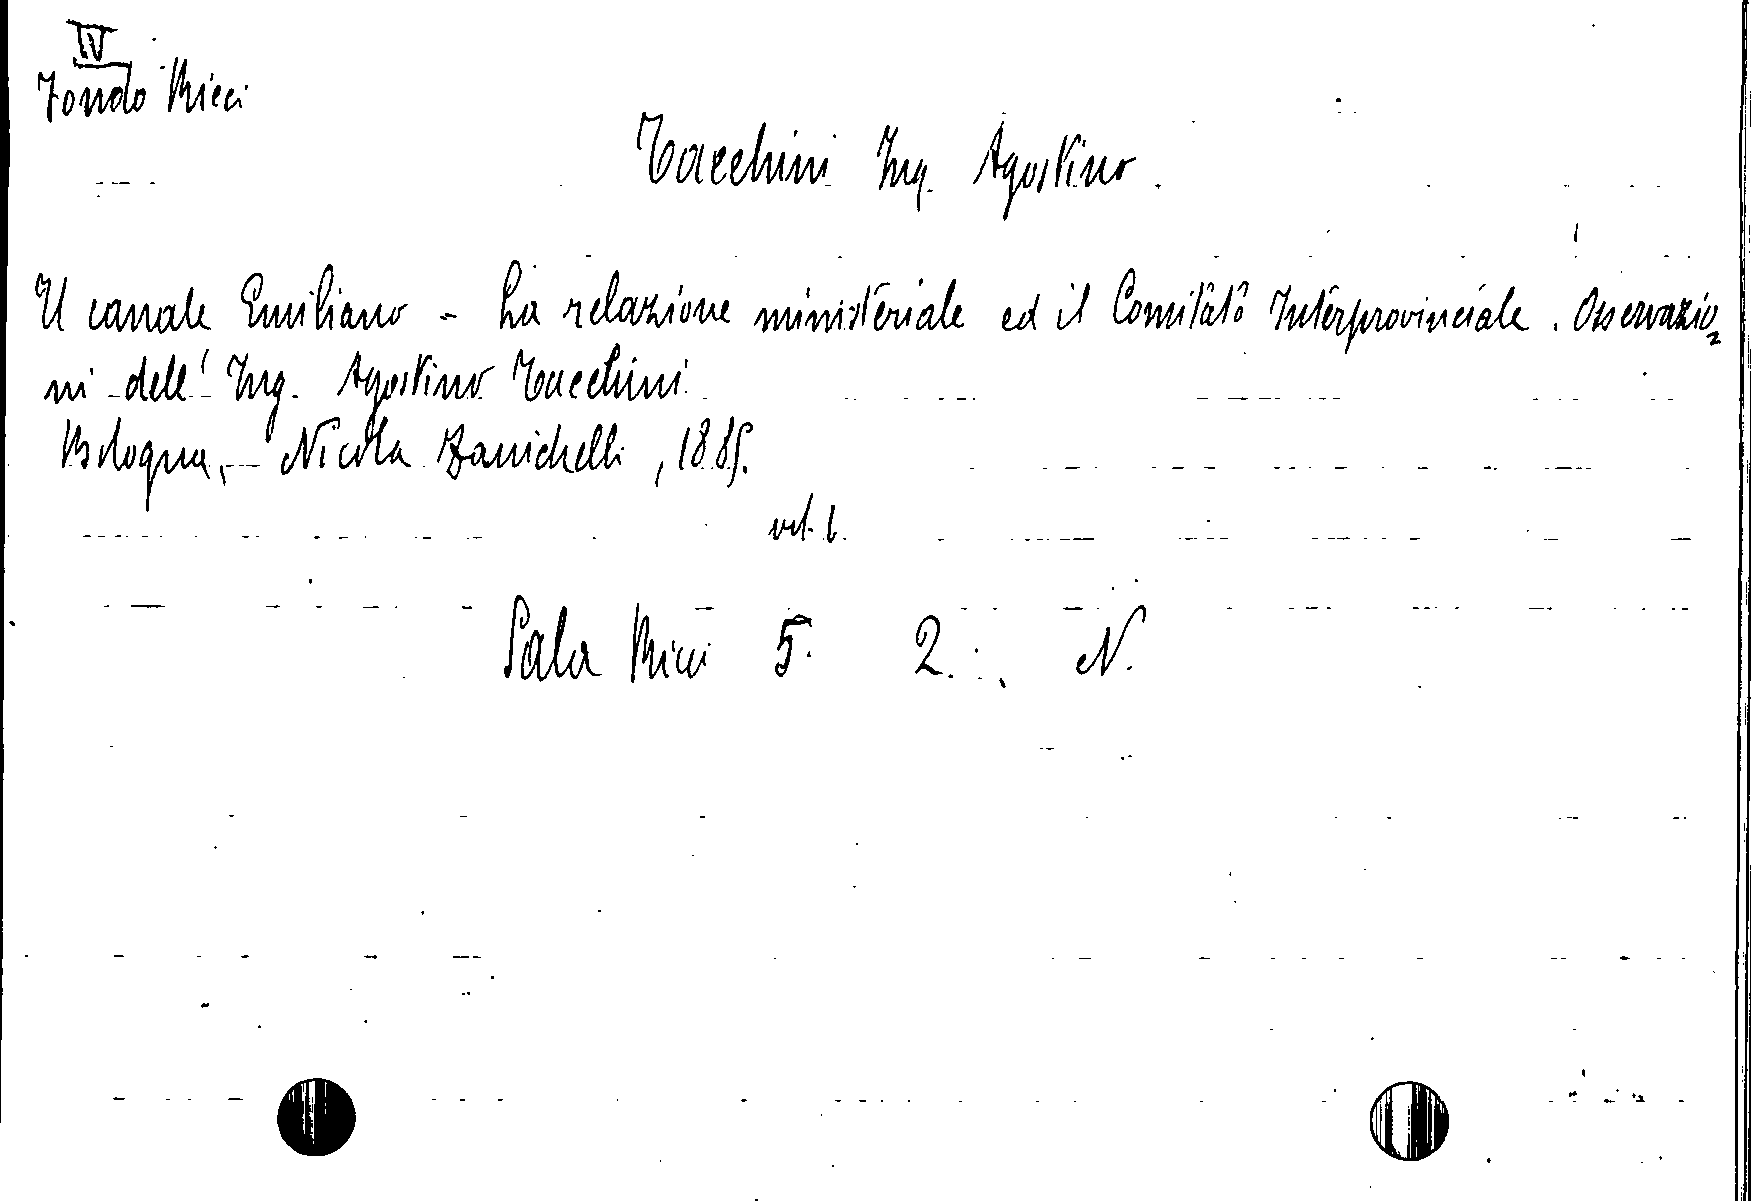 IV
Fondo Ricci
Tacchini Ing. Agostino.
Il canale Emiliano - La relazione ministeriale ed il Comitato Interprovinciale. Osservazio=
ni dell' Ing. Agostino Tacchini
Bologna, - Nicola Zanichelli, 1885.
vol. 1.
Sala Ricci 5. 2. N.